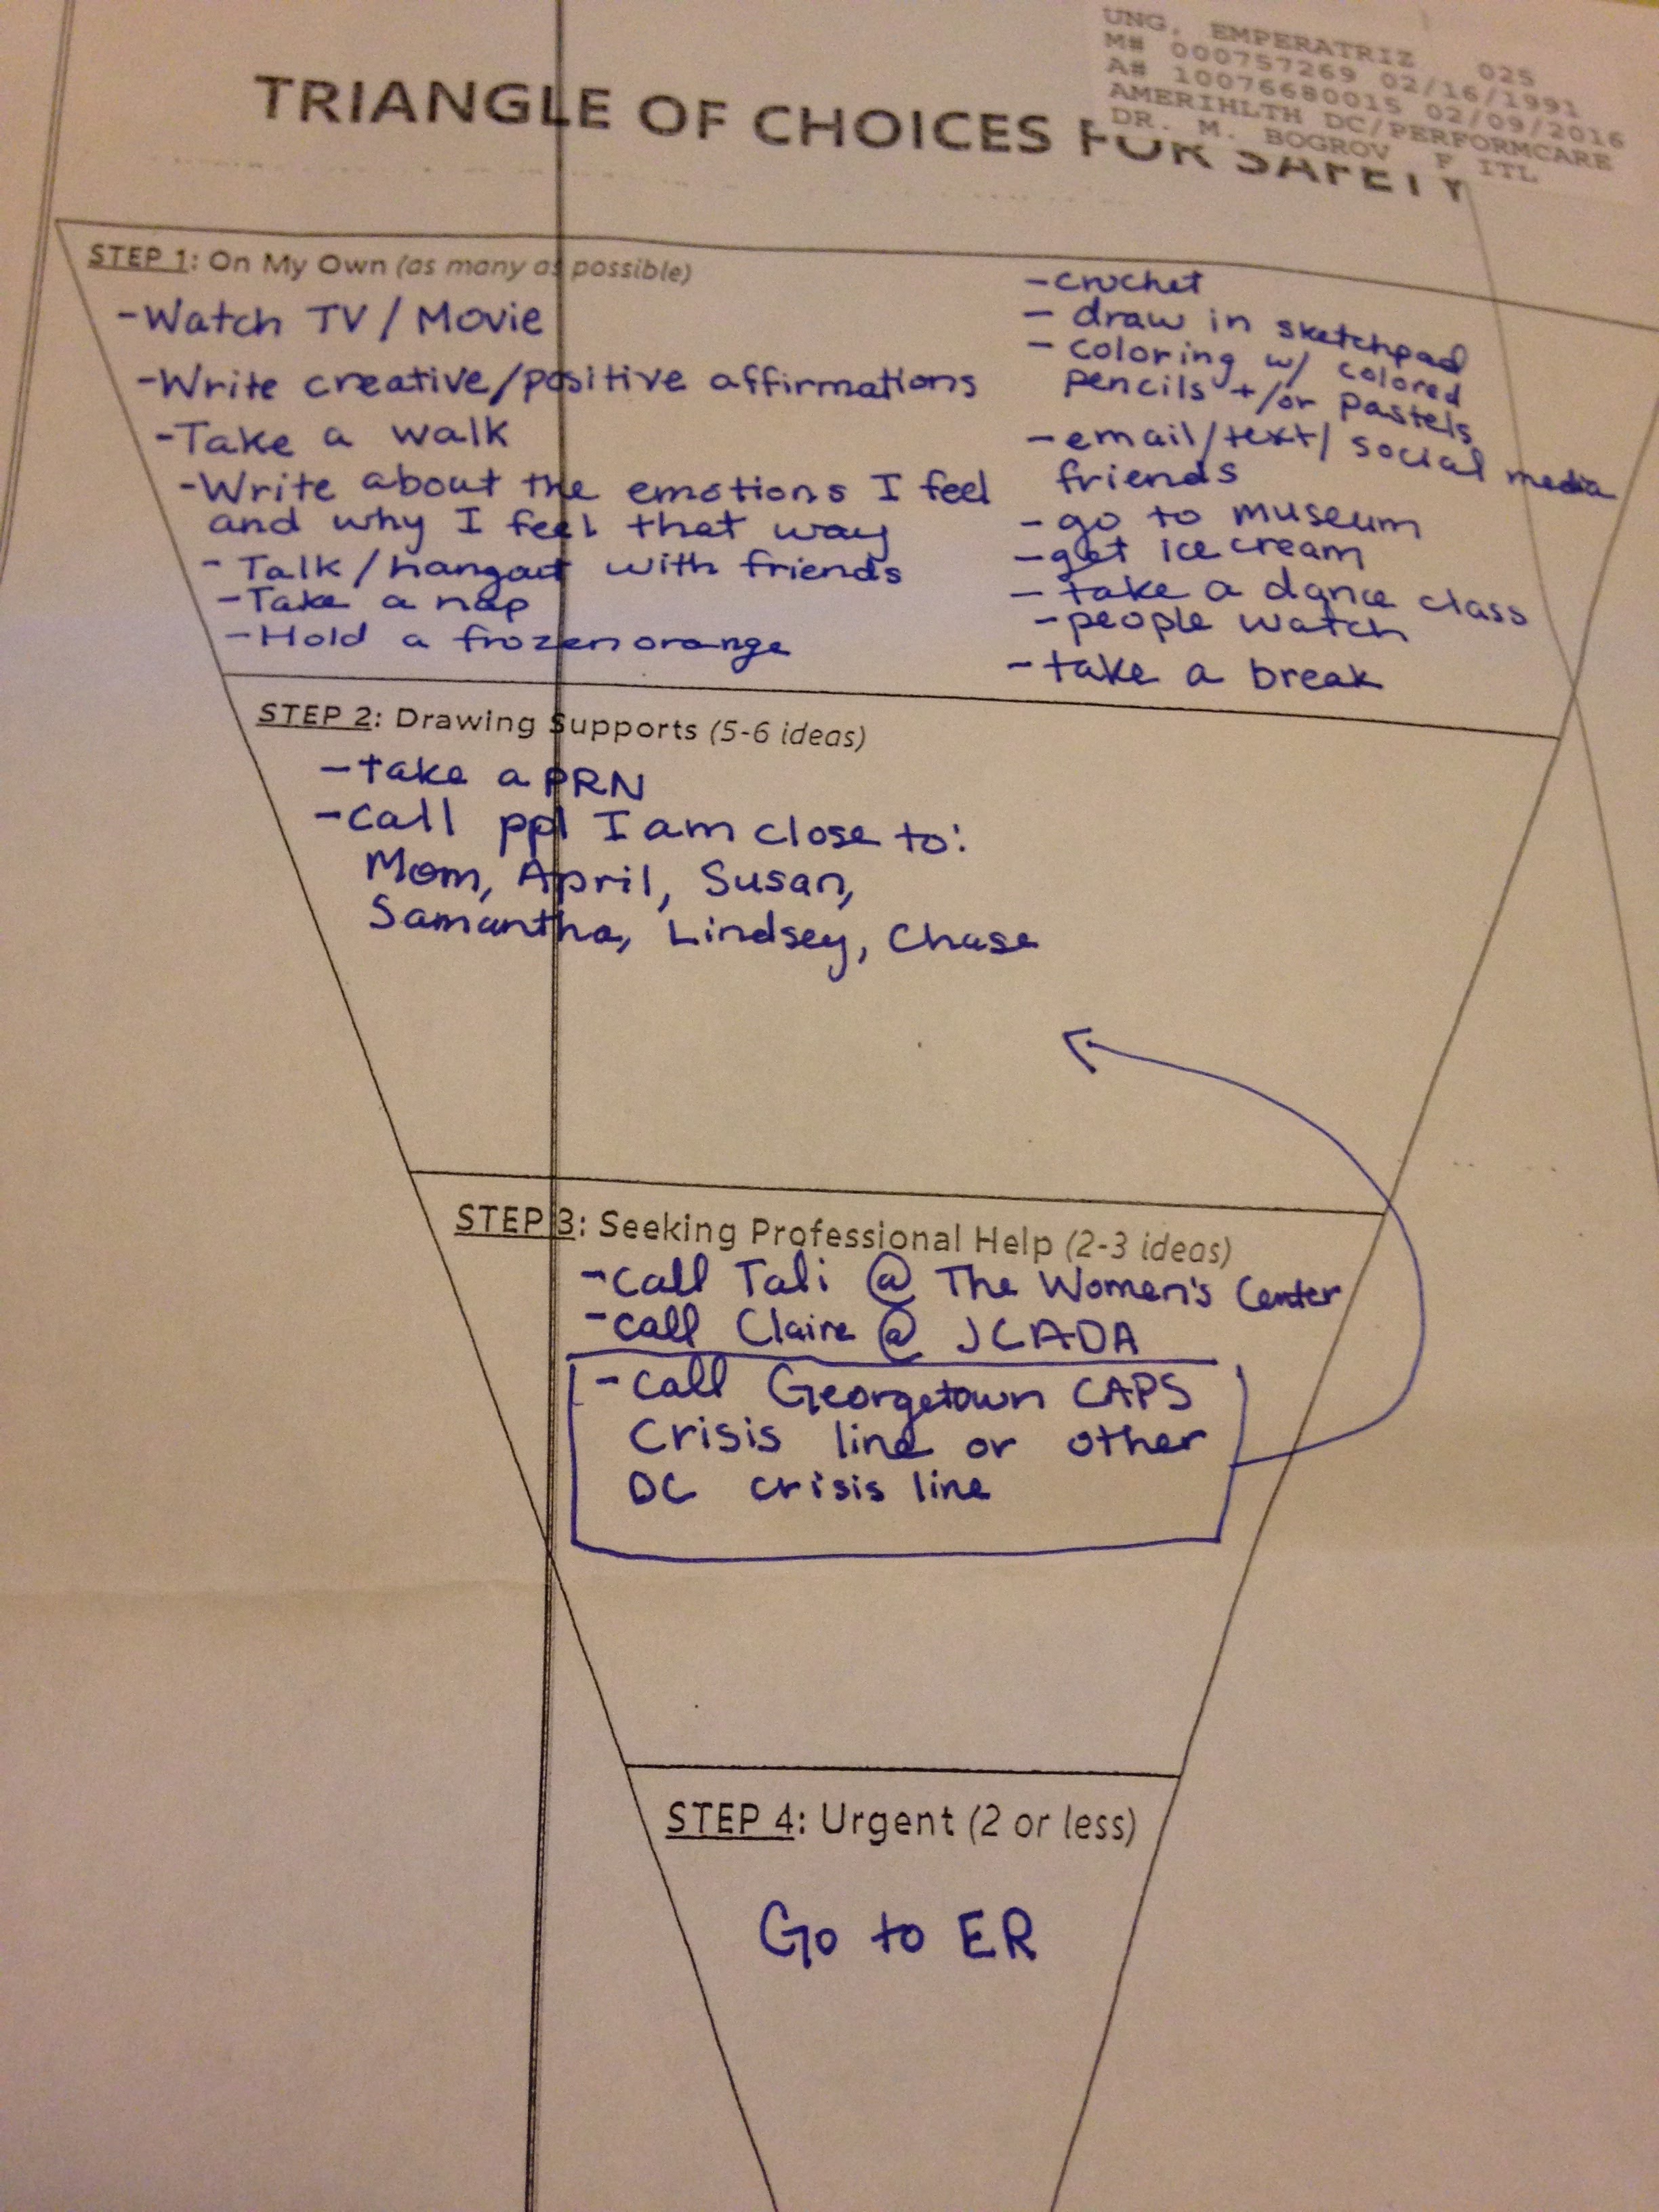 UNG, EMPERATRIZ 025
M# 000757269 02/16/1991
A# 10076680015 02/09/2016
AMERIHLTH DC/PERFORMCARE
DR. M. BOGROV F ITL
TRIANGLE OF CHOICES FOR SAFETY
STEP 1: On My Own (as many as possible)
-Watch TV / Movie
-Write creative/positive affirmations
-Take a walk
-Write about the emotions I feel
and why I feel that way
- Talk/hangout with friends
-Take a nap
-Hold a frozen orange
-crochet
- draw in sketchpad
- coloring w/ colored
pencils +/or pastels
-email/text/ social media
friends
-go to museum
-get ice cream
-take a dance class
-people watch
-take a break
STEP 2: Drawing Supports (5-6 ideas)
-take a PRN
-call ppl I am close to:
Mom, April, Susan,
Samantha, Lindsey, Chase
STEP 3: Seeking Professional Help (2-3 ideas)
-call Tali @ The Women's Center
-call Claire @ JCADA
-call Georgetown CAPS
Crisis line or other
DC crisis line
STEP 4: Urgent (2 or less)
Go to ER